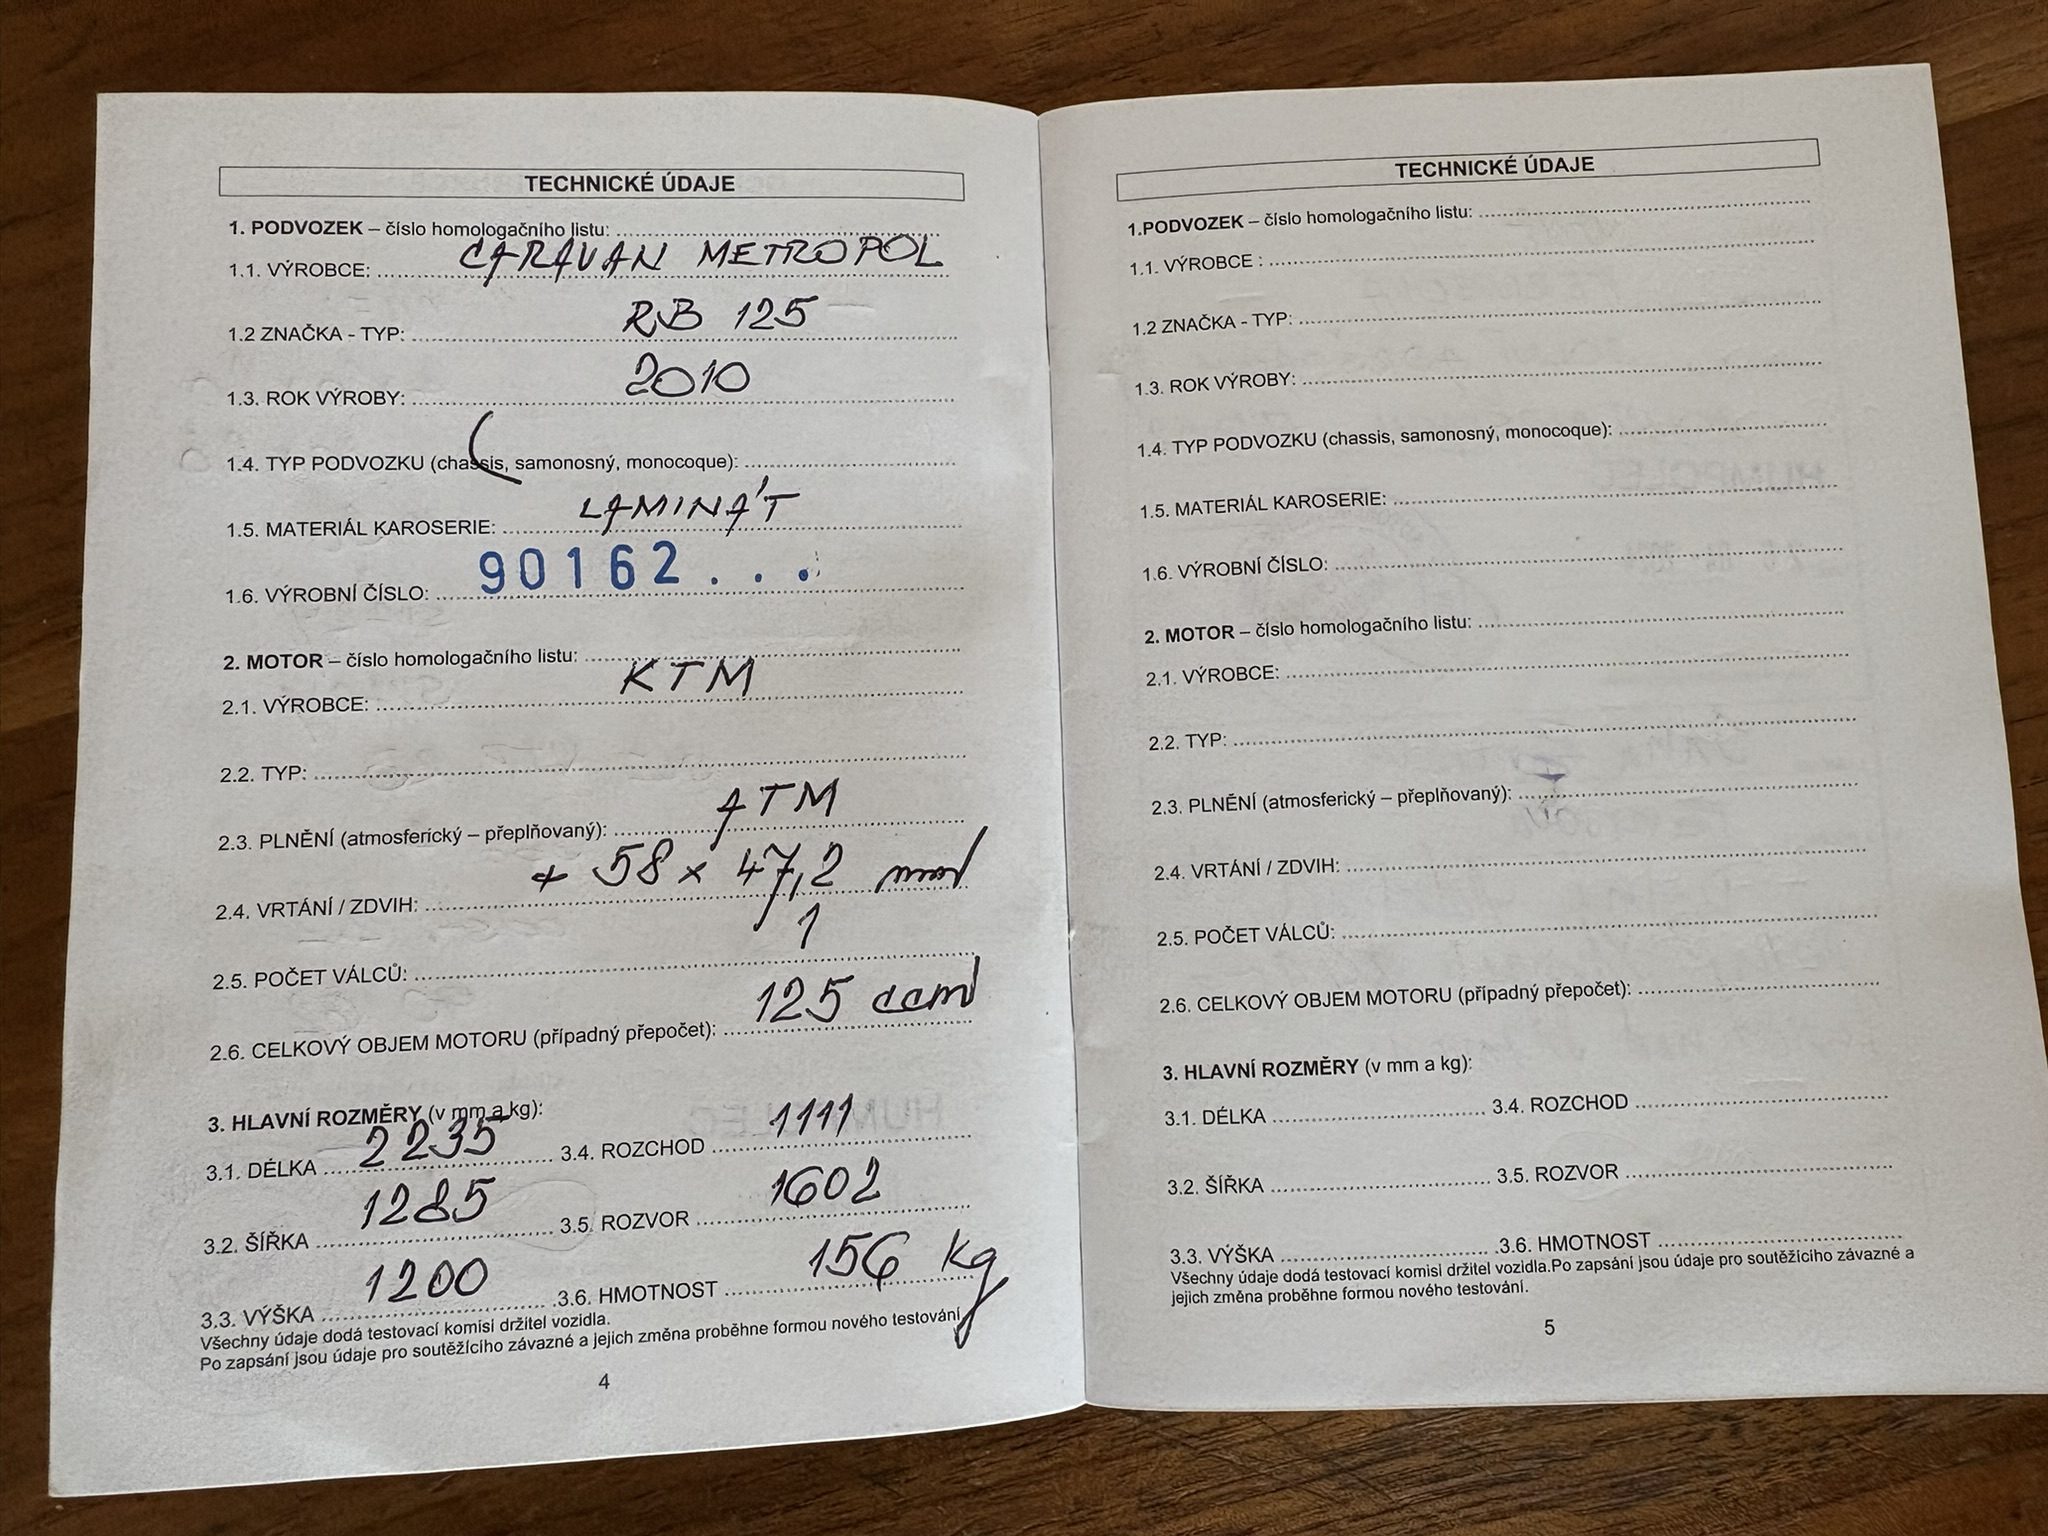 TECHNICKÉ ÚDAJE
1. PODVOZEK – číslo homologačního listu:
1.1. VÝROBCE: CARAVAN METROPOL
1.2 ZNAČKA - TYP: RB 125
1.3. ROK VÝROBY: 2010
1.4. TYP PODVOZKU (chassis, samonosný, monocoque):
1.5. MATERIÁL KAROSERIE: LAMINÁT
1.6. VÝROBNÍ ČÍSLO: 90162...
2. MOTOR – číslo homologačního listu:
2.1. VÝROBCE: KTM
2.2. TYP:
2.3. PLNĚNÍ (atmosferický – přeplňovaný): ATM
2.4. VRTÁNÍ / ZDVIH: 58 x 47,2 mm
2.5. POČET VÁLCŮ: 1
2.6. CELKOVÝ OBJEM MOTORU (případný přepočet): 125 ccm
3. HLAVNÍ ROZMĚRY (v mm a kg):
3.1. DÉLKA 2235 3.4. ROZCHOD 1111
3.2. ŠÍŘKA 1285 3.5. ROZVOR 1602
3.3. VÝŠKA 1200 3.6. HMOTNOST 156 kg
Všechny údaje dodá testovací komisi držitel vozidla.
Po zapsání jsou údaje pro soutěžícího závazné a jejich změna proběhne formou nového testování
4
TECHNICKÉ ÚDAJE
1.PODVOZEK – číslo homologačního listu:
1.1. VÝROBCE :
1.2 ZNAČKA - TYP:
1.3. ROK VÝROBY:
1.4. TYP PODVOZKU (chassis, samonosný, monocoque):
1.5. MATERIÁL KAROSERIE:
1.6. VÝROBNÍ ČÍSLO:
2. MOTOR – číslo homologačního listu:
2.1. VÝROBCE:
2.2. TYP:
2.3. PLNĚNÍ (atmosferický – přeplňovaný):
2.4. VRTÁNÍ / ZDVIH:
2.5. POČET VÁLCŮ:
2.6. CELKOVÝ OBJEM MOTORU (případný přepočet):
3. HLAVNÍ ROZMĚRY (v mm a kg):
3.1. DÉLKA 3.4. ROZCHOD
3.2. ŠÍŘKA 3.5. ROZVOR
3.3. VÝŠKA 3.6. HMOTNOST
Všechny údaje dodá testovací komisi držitel vozidla.Po zapsání jsou údaje pro soutěžícího závazné a
jejich změna proběhne formou nového testování.
5